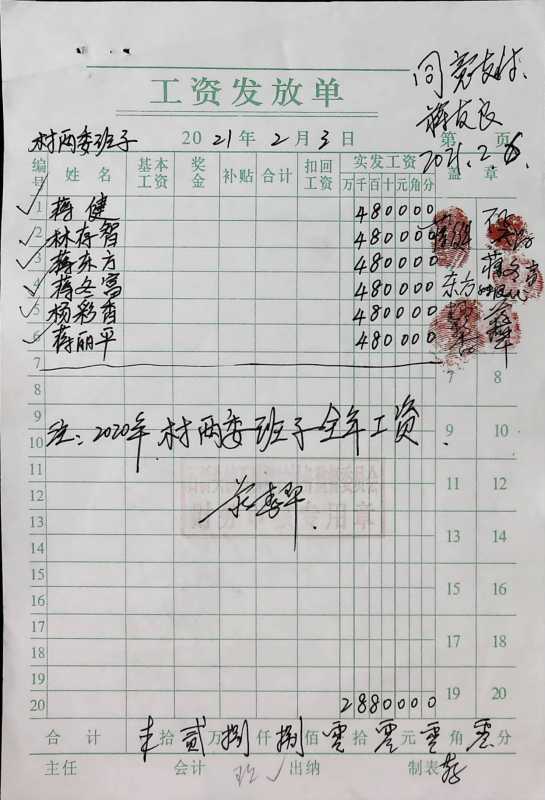 同意支付
蒋友良
2021.2.6
工资发放单
村两委班子 2021年2月3日 第 页
编号 姓名 基本工资 奖金 补贴 合计 扣回工资 实发工资 盖章
万千百十元角分
1 蒋健 480000
2 林存智 480000
3 蒋东方 480000
4 蒋冬富 480000
5 杨彩香 480000
6 蒋丽平 480000
7 7 8
8
9
注：2020年村两委班子全年工资
10 9 10
11
12 11 12
财务 专用章
13
14 13 14
15
16 15 16
17
18 17 18
19
20 2880000 19 20
合计 拾贰万捌仟捌佰零拾零元零角零分
主任 会计 出纳 制表